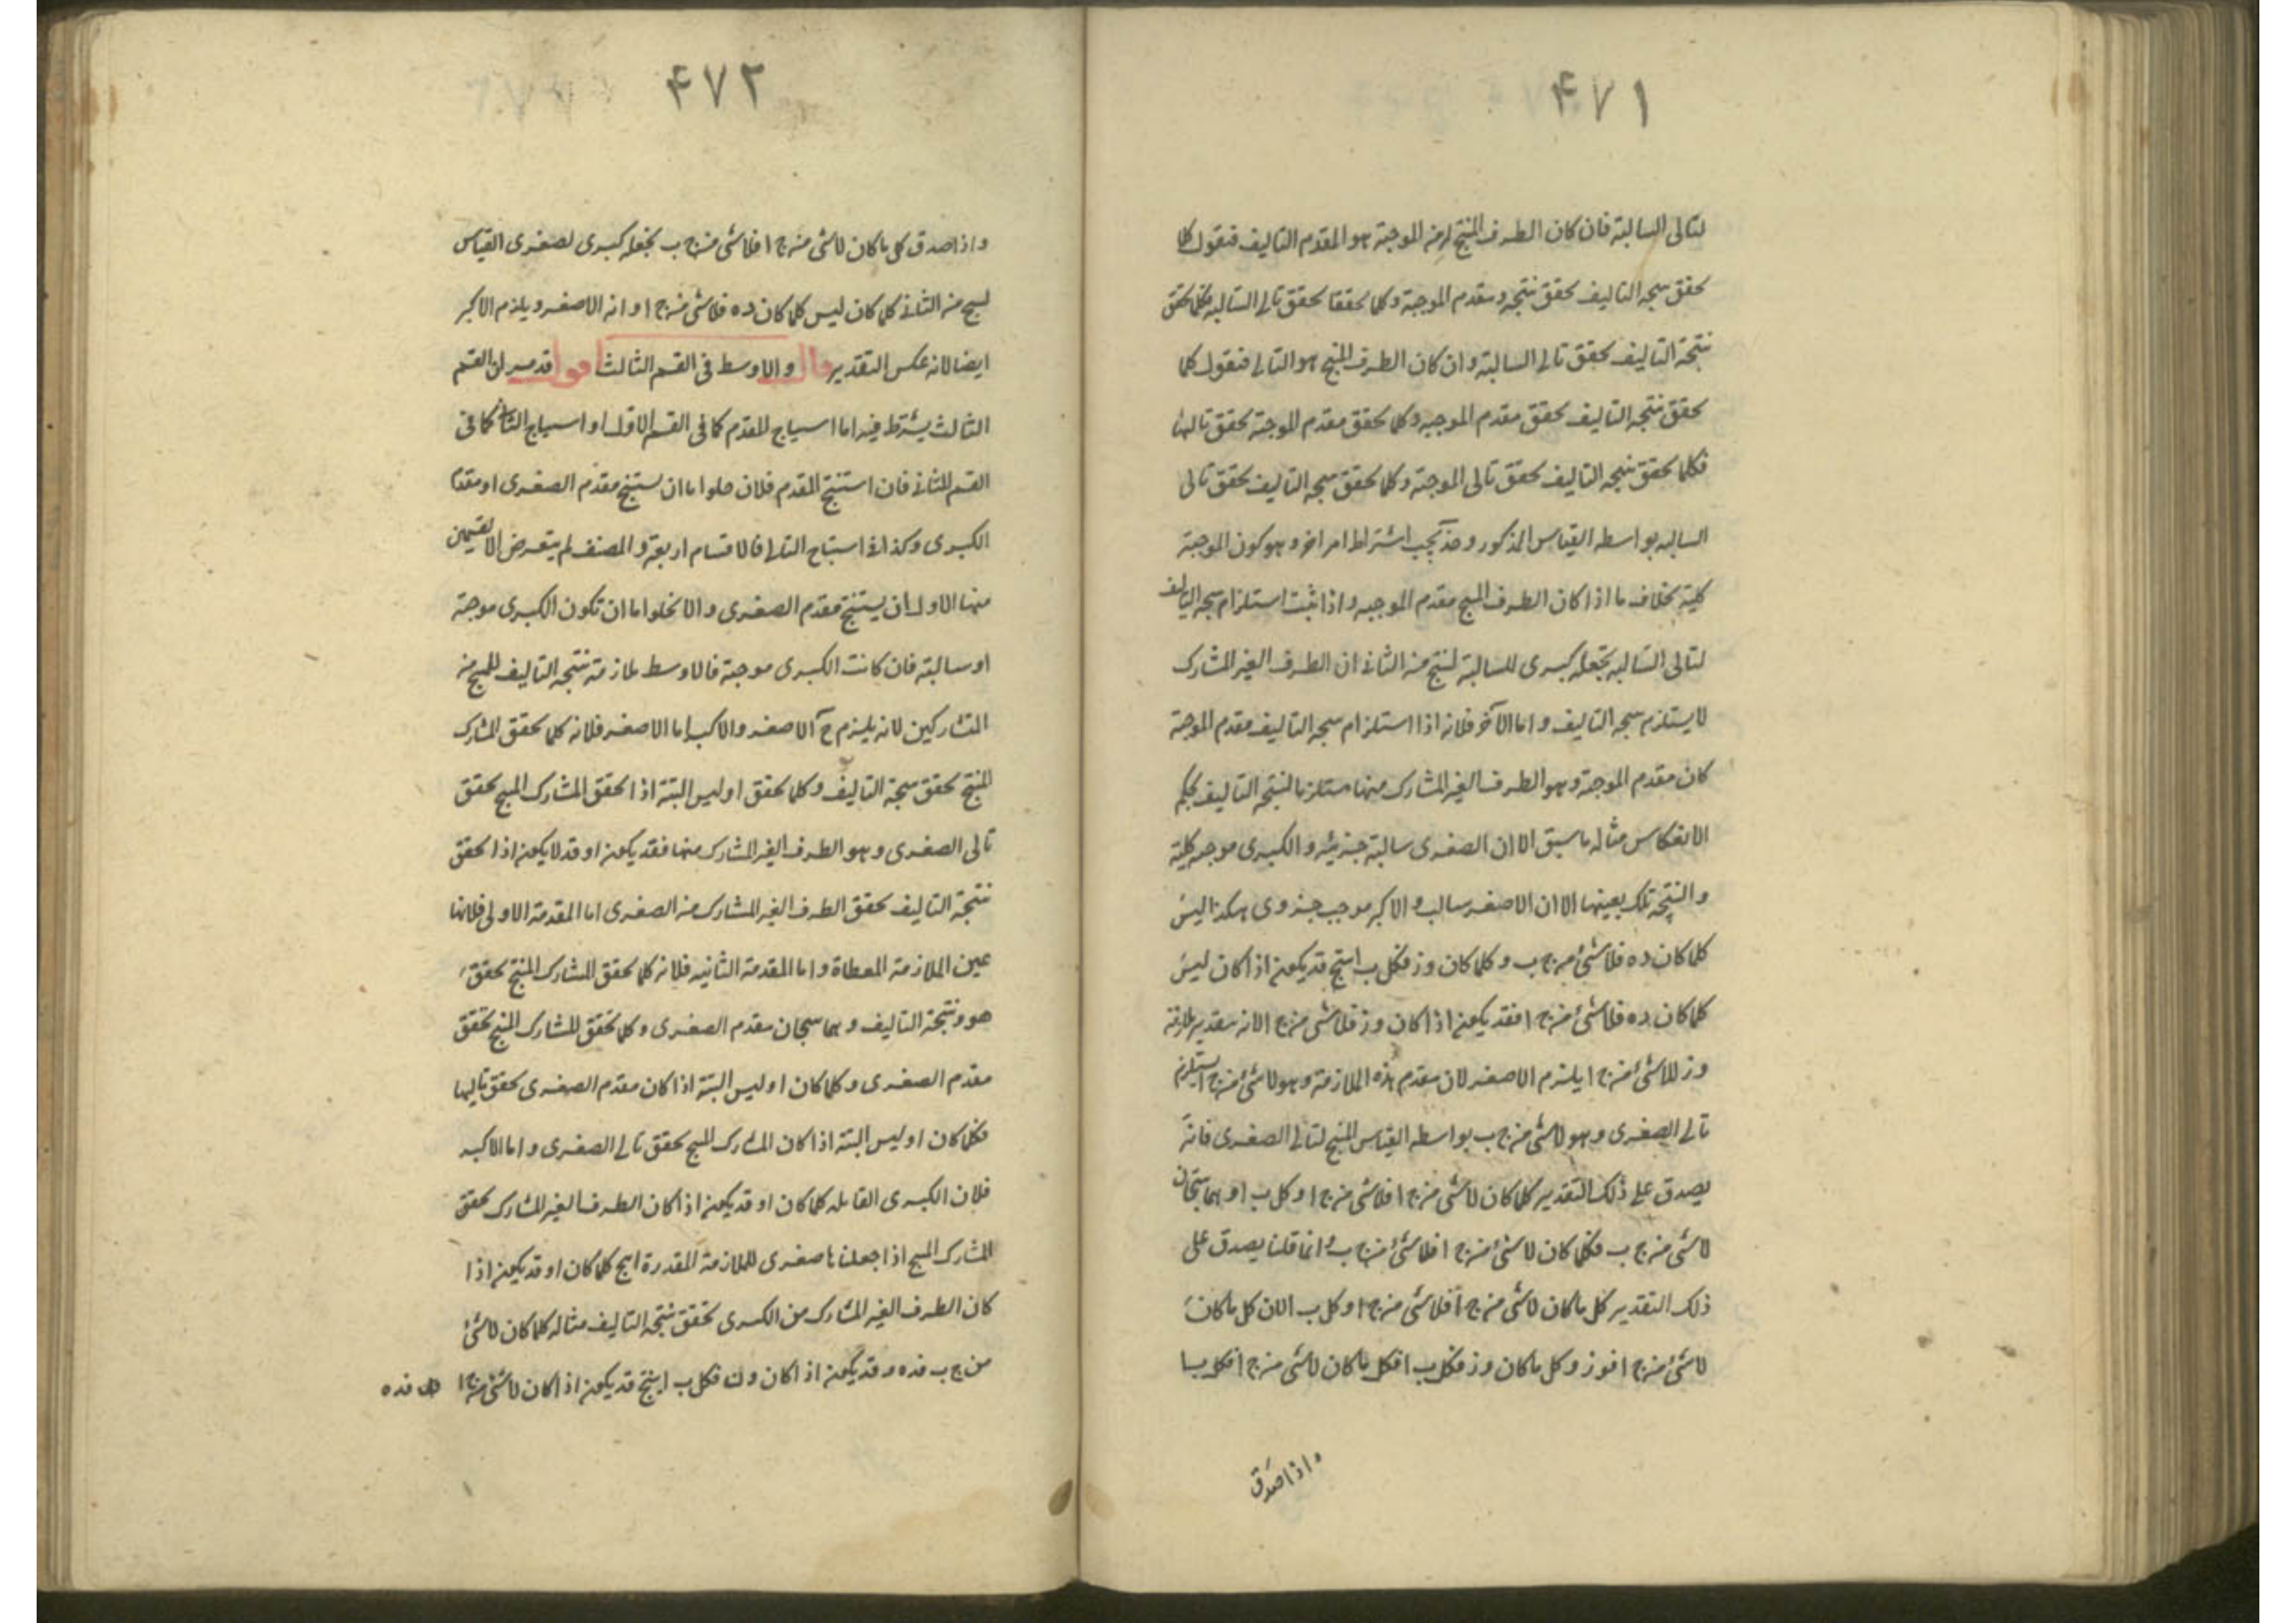 ۴۷۱
لتالى السالبة فان كان الطرف المنتج من الموجبة هو المقدم التاليف فنقول كلما
تحقق نتيجة التاليف تحقق نتيجة ومقدم الموجبة وكلما تحققا تحقق تالى السالبة فكلما تحقق
نتيجة التاليف تحقق تالى السالبة وان كان الطرف المنتج هو التالى فنقول كلما
تحقق نتيجة التاليف تحقق مقدم الموجبه وكلما تحقق مقدم الموجبة تحقق تاليها
فكلما تحقق نتيجة التاليف تحقق تالى الموجبة وكلما تحقق نتيجة التاليف تحقق تالى
السالبه بواسطه القياس المذكور وح يجب اشتراط امر اخر وهو كون الموجبة
كلية بخلاف ما اذا كان الطرف المنتج مقدم الموجبه واذا ثبت استلزام نتيجة التاليف
لتالى السالبه نجعله كبرى للسالبة لينتج من الثانى ان الطرف الغير المشارك
لا يستلزم نتيجة التاليف واما الآخر فلانه اذا استلزام نتيجة التاليف مقدم الموجبة
كان مقدم الموجبة وهو الطرف الغير المشارك منها مستلزما لنتيجة التاليف بحكم
الانعكاس مثاله ما سبق الا ان الصغرى سالبة جزئيه والكبرى موجبه كلية
والنتيجة تلك بعينها الا ان الاصغر سالب والاكبر موجب جزوى هكذا ليس
كلما كان ده فلاشئ من ج ب وكلما كان وز فكل ب ا ينتج قد يكون اذا كان ليس
كلما كان ده فلاشئ من ج ا فقد يكون اذا كان وز فلاشى من ج ا لانه بتقدير ملازمة
وز للاشئ من ج ا يلزم الاصغر لان مقدم هذه الملازمة وهو لاشئ من ج ا يستلزم
تالى الصغرى وهو لاشى من ج ب بواسطه القياس المنتج لتالى الصغرى فانه
يصدق على ذلك التقدير كلما كان لاشى من ج ا فلاشى من ج ا وكل ب ا وهما ينتجان
لاشى من ج ب فكلما كان لاشئ من ج ا فلاشئ من ج ب وانما قلنا يصدق على
ذلك التقدير كل ما كان لاشى من ج ا فلاشى من ج ا وكل ب ا لان كل ما كان
لاشئ من ج ا فوز وكل ما كان وز فكل ب ا فكل ما كان لاشى من ج ا فكل ب ا
واذا صدق
۴۷۲
واذا صدق كل ما كان لاشى من ج ا فلاشى من ج ب نجعله كبرى لصغرى القياس
لينتج من الثانى كلما كان ليس كلما كان ده فلاشى من ج ا وانه الاصغر ويلزم الاكبر
ايضا لانه عكس التقدير قال والاوسط فى القسم الثالث اقول قد مر ان القسم
الثالث يشترط فيه اما استنتاج المقدم كما فى القسم الاول او استنتاج التالى كما فى
القسم الثانى فان استنتج المقدم فلان خلوا ما ان يستنتج مقدم الصغرى او مقدم
الكبرى وكذا فى استنتاج التالى فالاقسام اربعة والمصنف لم يتعرض الا لقسمين
منها الاول ان يستنتج مقدم الصغرى والا يخلوا ما ان تكون الكبرى موجبة
او سالبة فان كانت الكبرى موجبة فالاوسط ملازمة نتيجة التاليف للمنتج من
المتشاركين لانه يلزم ح الاصغر والاكبر اما الاصغر فلانه كلما تحقق المشارك
المنتج تحقق نتيجة التاليف وكلما تحقق او ليس البتة اذا تحقق المشارك المنتج تحقق
تالى الصغرى وهو الطرف الغير المشارك منها فقد يكون او قد لا يكون اذا تحقق
نتيجة التاليف تحقق الطرف الغير المشارك من الصغرى اما المقدمة الاولى فلانها
عين الملازمة المعطاة واما المقدمة الثانيه فلانه كلما تحقق المشارك المنتج تحقق
هو ونتيجة التاليف وهما ينتجان مقدم الصغرى وكلما تحقق المشارك المنتج تحقق
مقدم الصغرى وكلما كان او ليس البتة اذا كان مقدم الصغرى تحقق تاليها
فكلما كان او ليس البتة اذا كان المشارك المنتج تحقق تالى الصغرى واما الاكبر
فلان الكبرى القايله كلما كان او قد يكون اذا كان الطرف الغير المشارك تحقق
المشارك المنتج اذا جعلناها صغرى للملازمة المقدرة انتج كلما كان او قد يكون اذا
كان الطرف الغير المشارك من الكبرى تحقق نتيجة التاليف مثاله كلما كان لاشئ
من ج ب فده وقد يكون اذا كان وز فكل ب ا ينتج قد يكون اذا كان لاشئ من ج ا فده